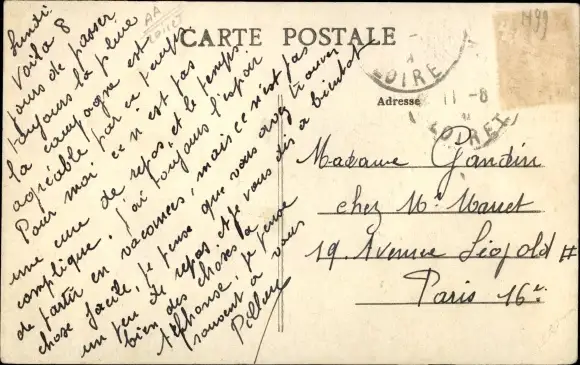 Lundi
Voilà 8
jours de passer
toujours la pluie
la campagne est
agréable par ce temps
Pour moi ce n'est pas
une cure de repos, et le temps
complique. J'ai toujours l'espoir
de partir en vacances, mais ce n'est pas
chose facile, je pense que vous avez trouver
un peu de repos et je vous dis à bientot
bien des choses à
Alphonse, je pense
souvent à vous
AA
LOIRET
CARTE POSTALE
Adresse
LOIRET
11-8
LOIRET
1199
Madame Gandin
chez Mr Maruet
19. Avenue Léopold II
Paris 16e